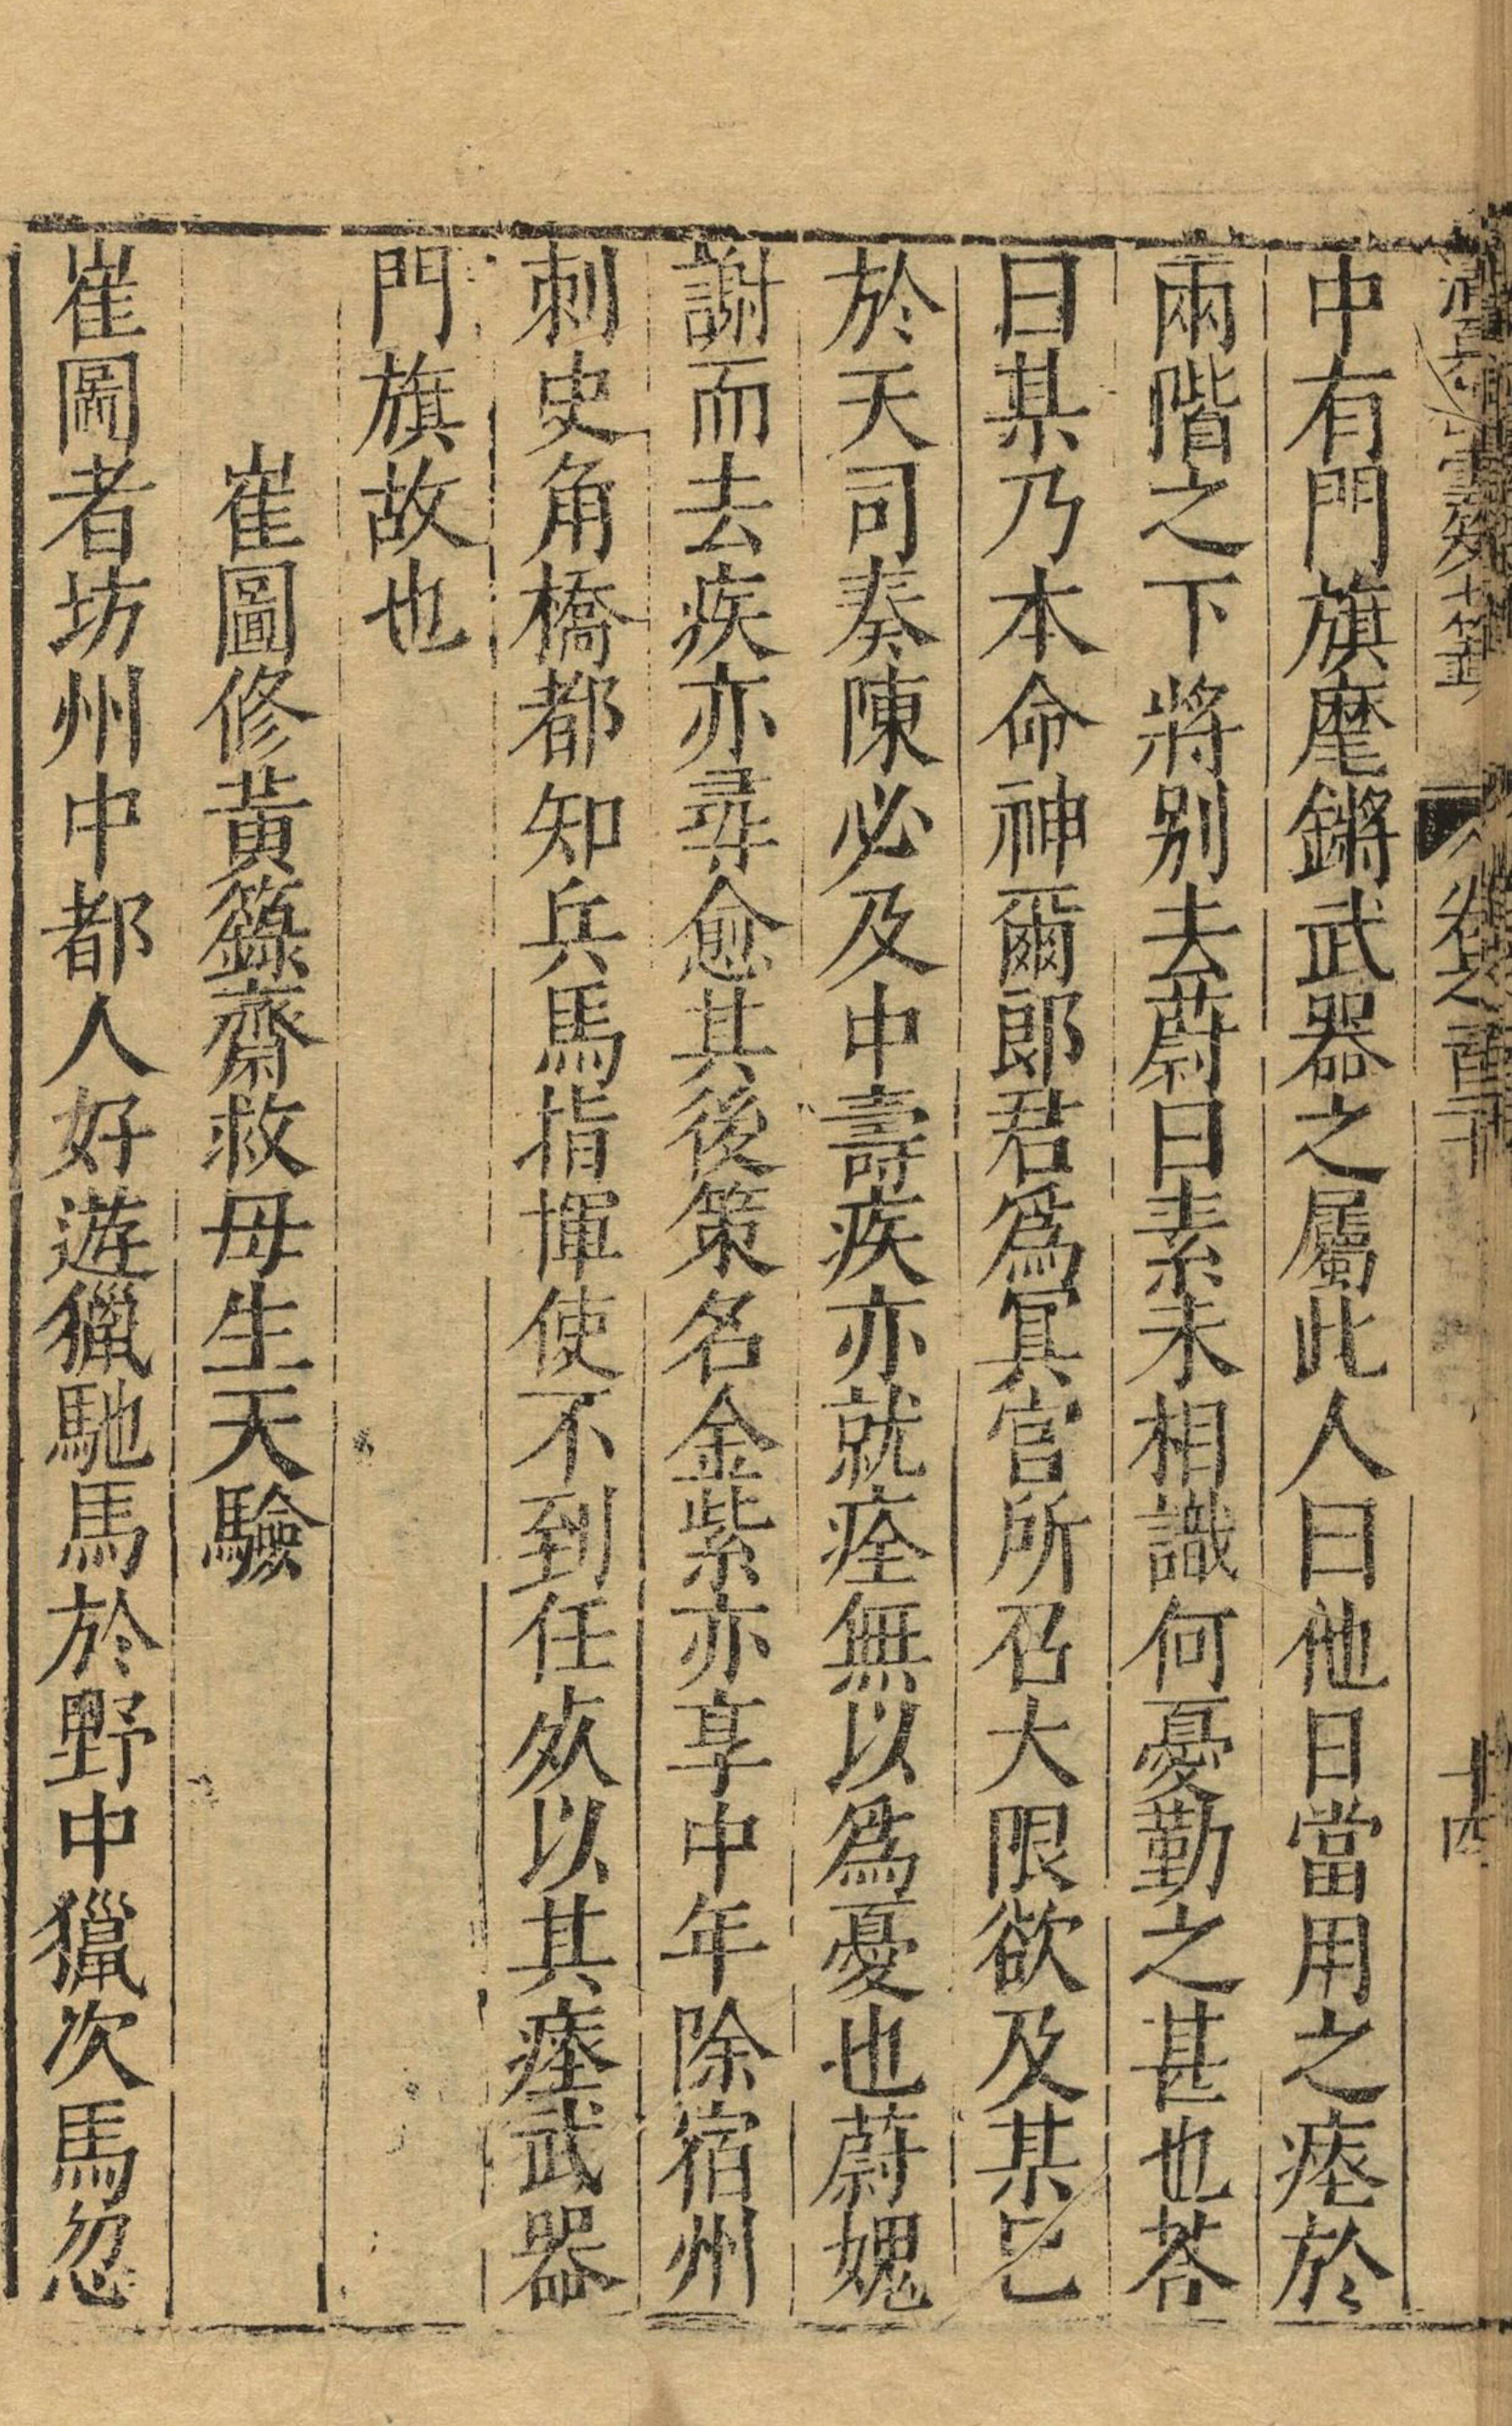 中有門旗麾鏘武器之屬此人曰他日當用之瘞於
兩階之下將别去蔚曰素未相識何憂勤之甚也荅
曰某乃本命神爾郎君爲冥官所召大限欲及某已
於天司奏陳必及中壽疾亦就痊無以爲憂也蔚媿
謝而去疾亦尋愈其後策名金紫亦享中年除宿州
刺史角橋都知兵馬指揮使不到任歿以其瘞武器
門旗故也
崔圖修黃籙齋救母生天驗
崔圖者坊州中都人好遊獵馳馬於野中獵次馬忽